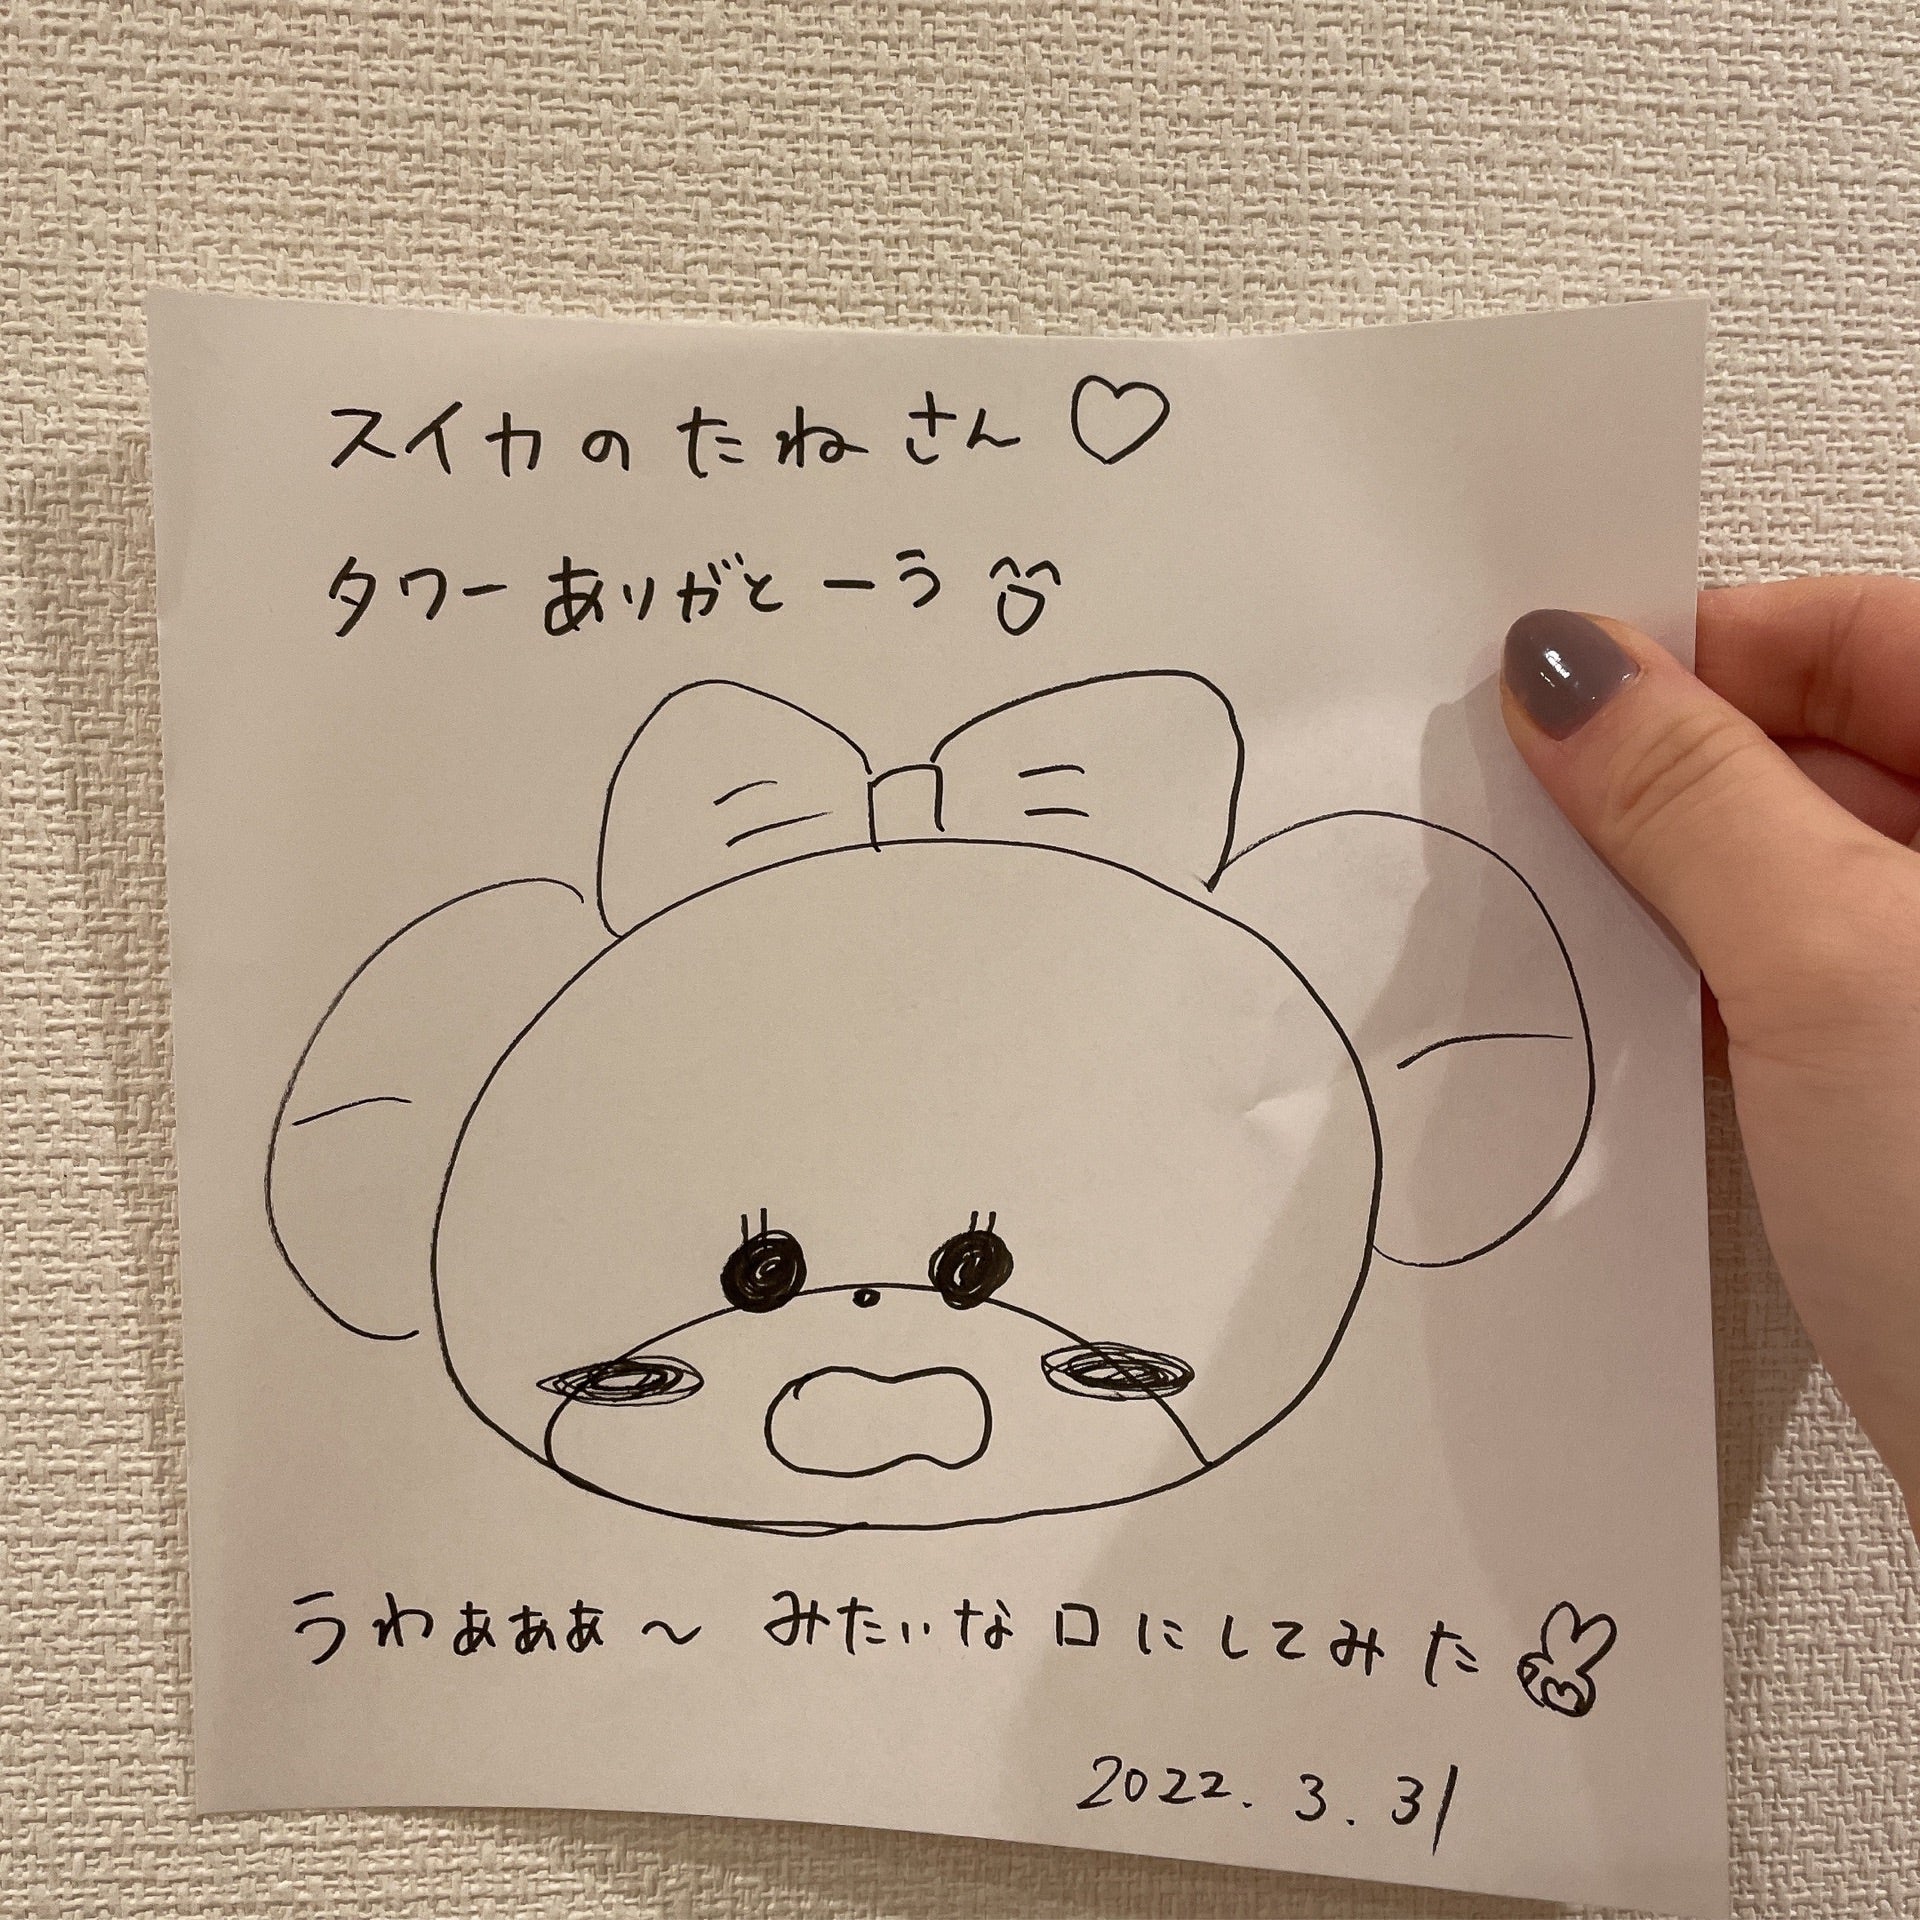 スイカのたねさん♡
タワーありがとーう
うわぁぁぁ〜 みたいな口にしてみた
2022. 3. 31